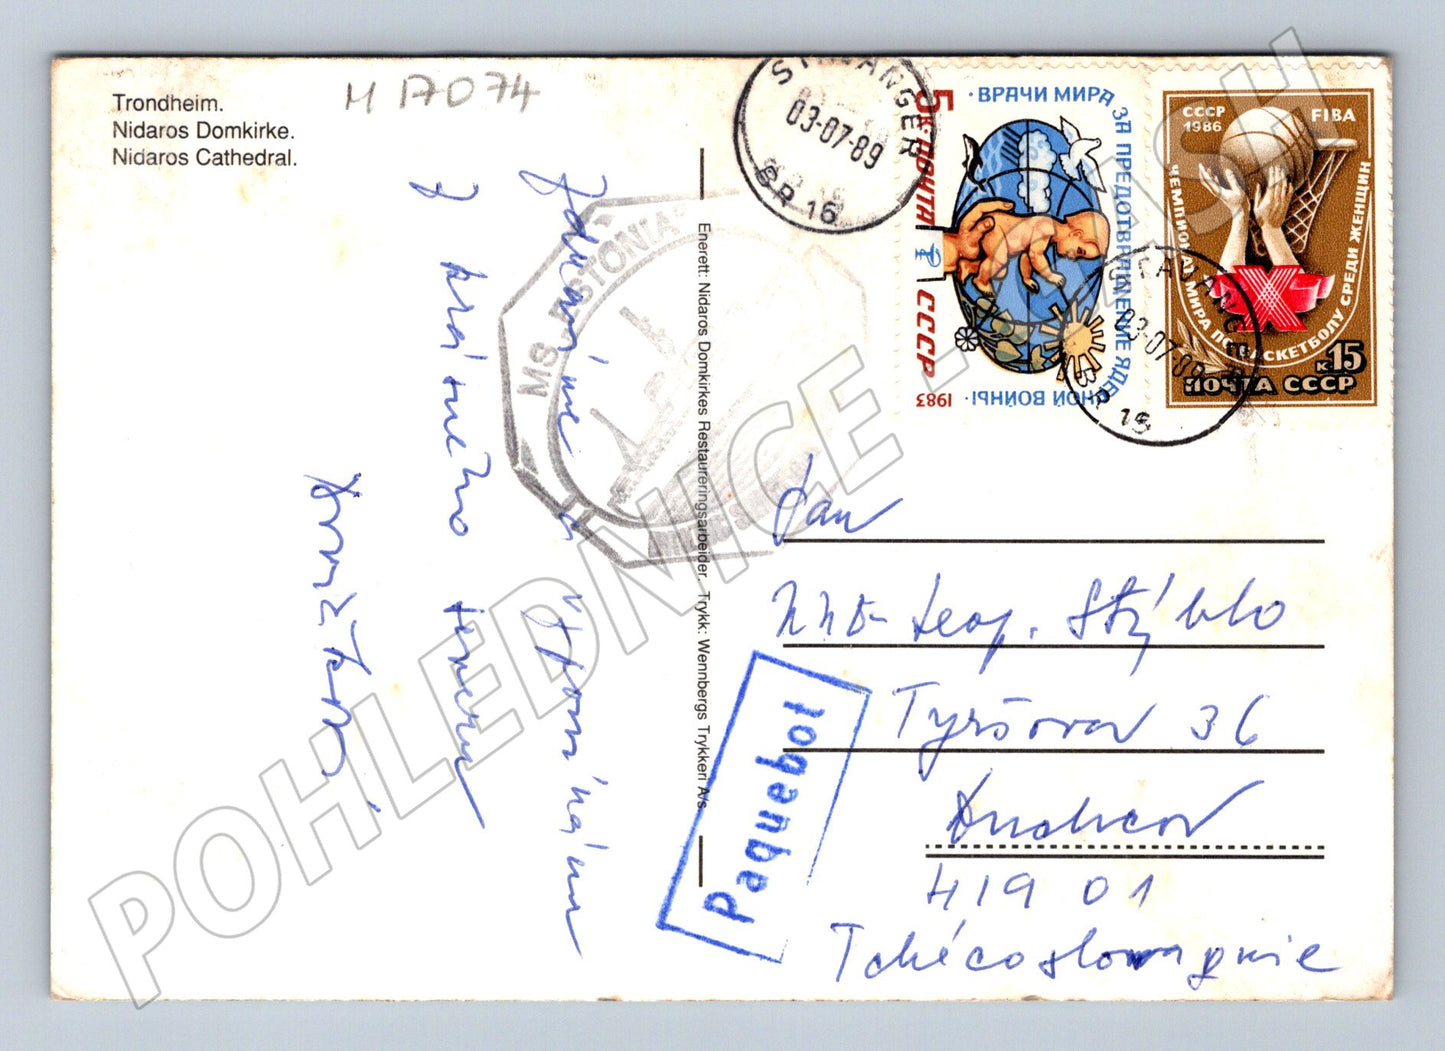 Trondheim.
Nidaros Domkirke.
Nidaros Cathedral.
H 17074
Zdraví me a vzpomínáme
Z krátkého
MS ESTONIA
Enerett: Nidaros Domkirkes Restaureringsarbeider. Trykk: Wennbergs Trykkeri A/s
STAVANGER
03-07-89
BR 16
5к ПОЧТА СССР
· ВРАЧИ МИРА ЗА ПРЕДОТВРАЩЕНИЕ ЯДЕРНОЙ ВОЙНЫ ·
1983
СССР
1986
FIBA
ЧЕМПИОНАТ МИРА ПО БАСКЕТБОЛУ СРЕДИ ЖЕНЩИН
X
к15
ПОЧТА СССР
STAVANGER
03-07-89
BR 16
Pan
Leop. Stýblo
Tyršova 36
Duchcov
419 01
Tchécoslovaquie
Paquebot
POHLEDNICE